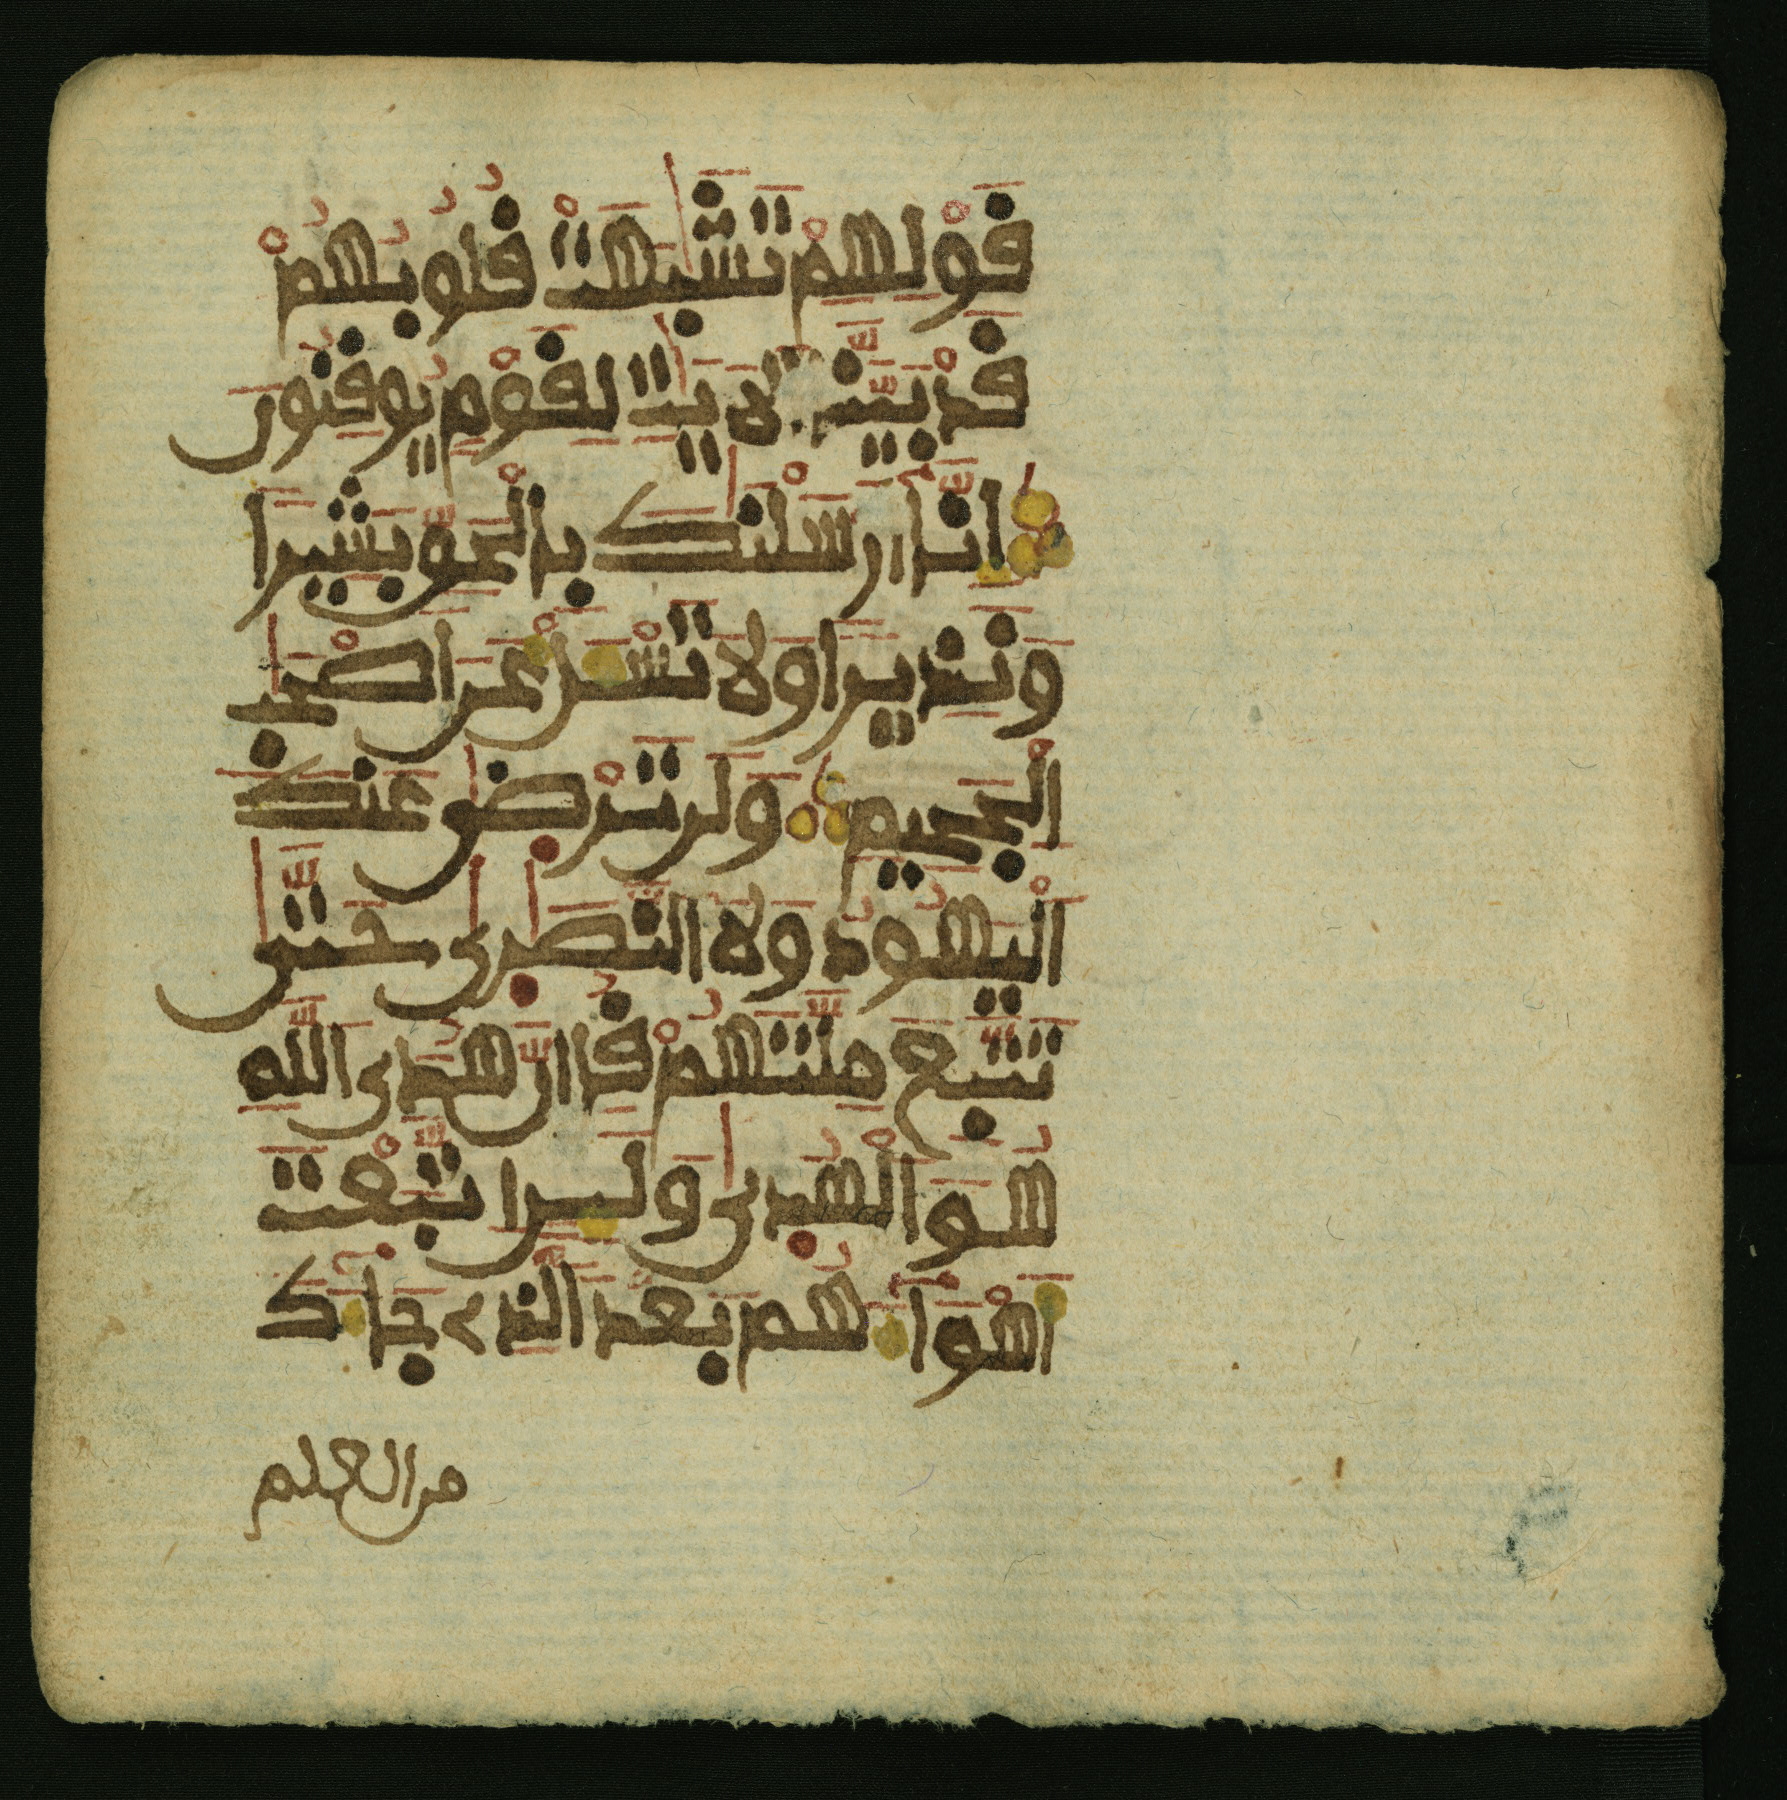 قَوْلِهِمْ تَشَٰبَهَتْ قُلُوبُهُمْ
قَدْ بَيَّنَّا الَايَٰتِ لِقَوْمٍ يُوقِنُونَ
اِنَّا أَرْسَلْنَٰكَ بِالْحَقِّ بَشِيرًا
وَنَذِيرًا وَلَا تَسْـَٔلْ عَنَ اَصْحَٰبِ
الْجَحِيمِ وَلَن تَرْضَىٰ عَنكَ
الْيَهُودُ وَلَا النَّصَٰرَىٰ حَتَّىٰ
تَتَّبِعَ مِلَّتَهُمْ قُلِ انَّ هُدَى اللَّهِ
هُوَ الْهُدَىٰ وَلَئِنِ اتَّبَعْتَ
أَهْوَآءَهُم بَعْدَ الَّذِى جَآءَكَ
من العلم